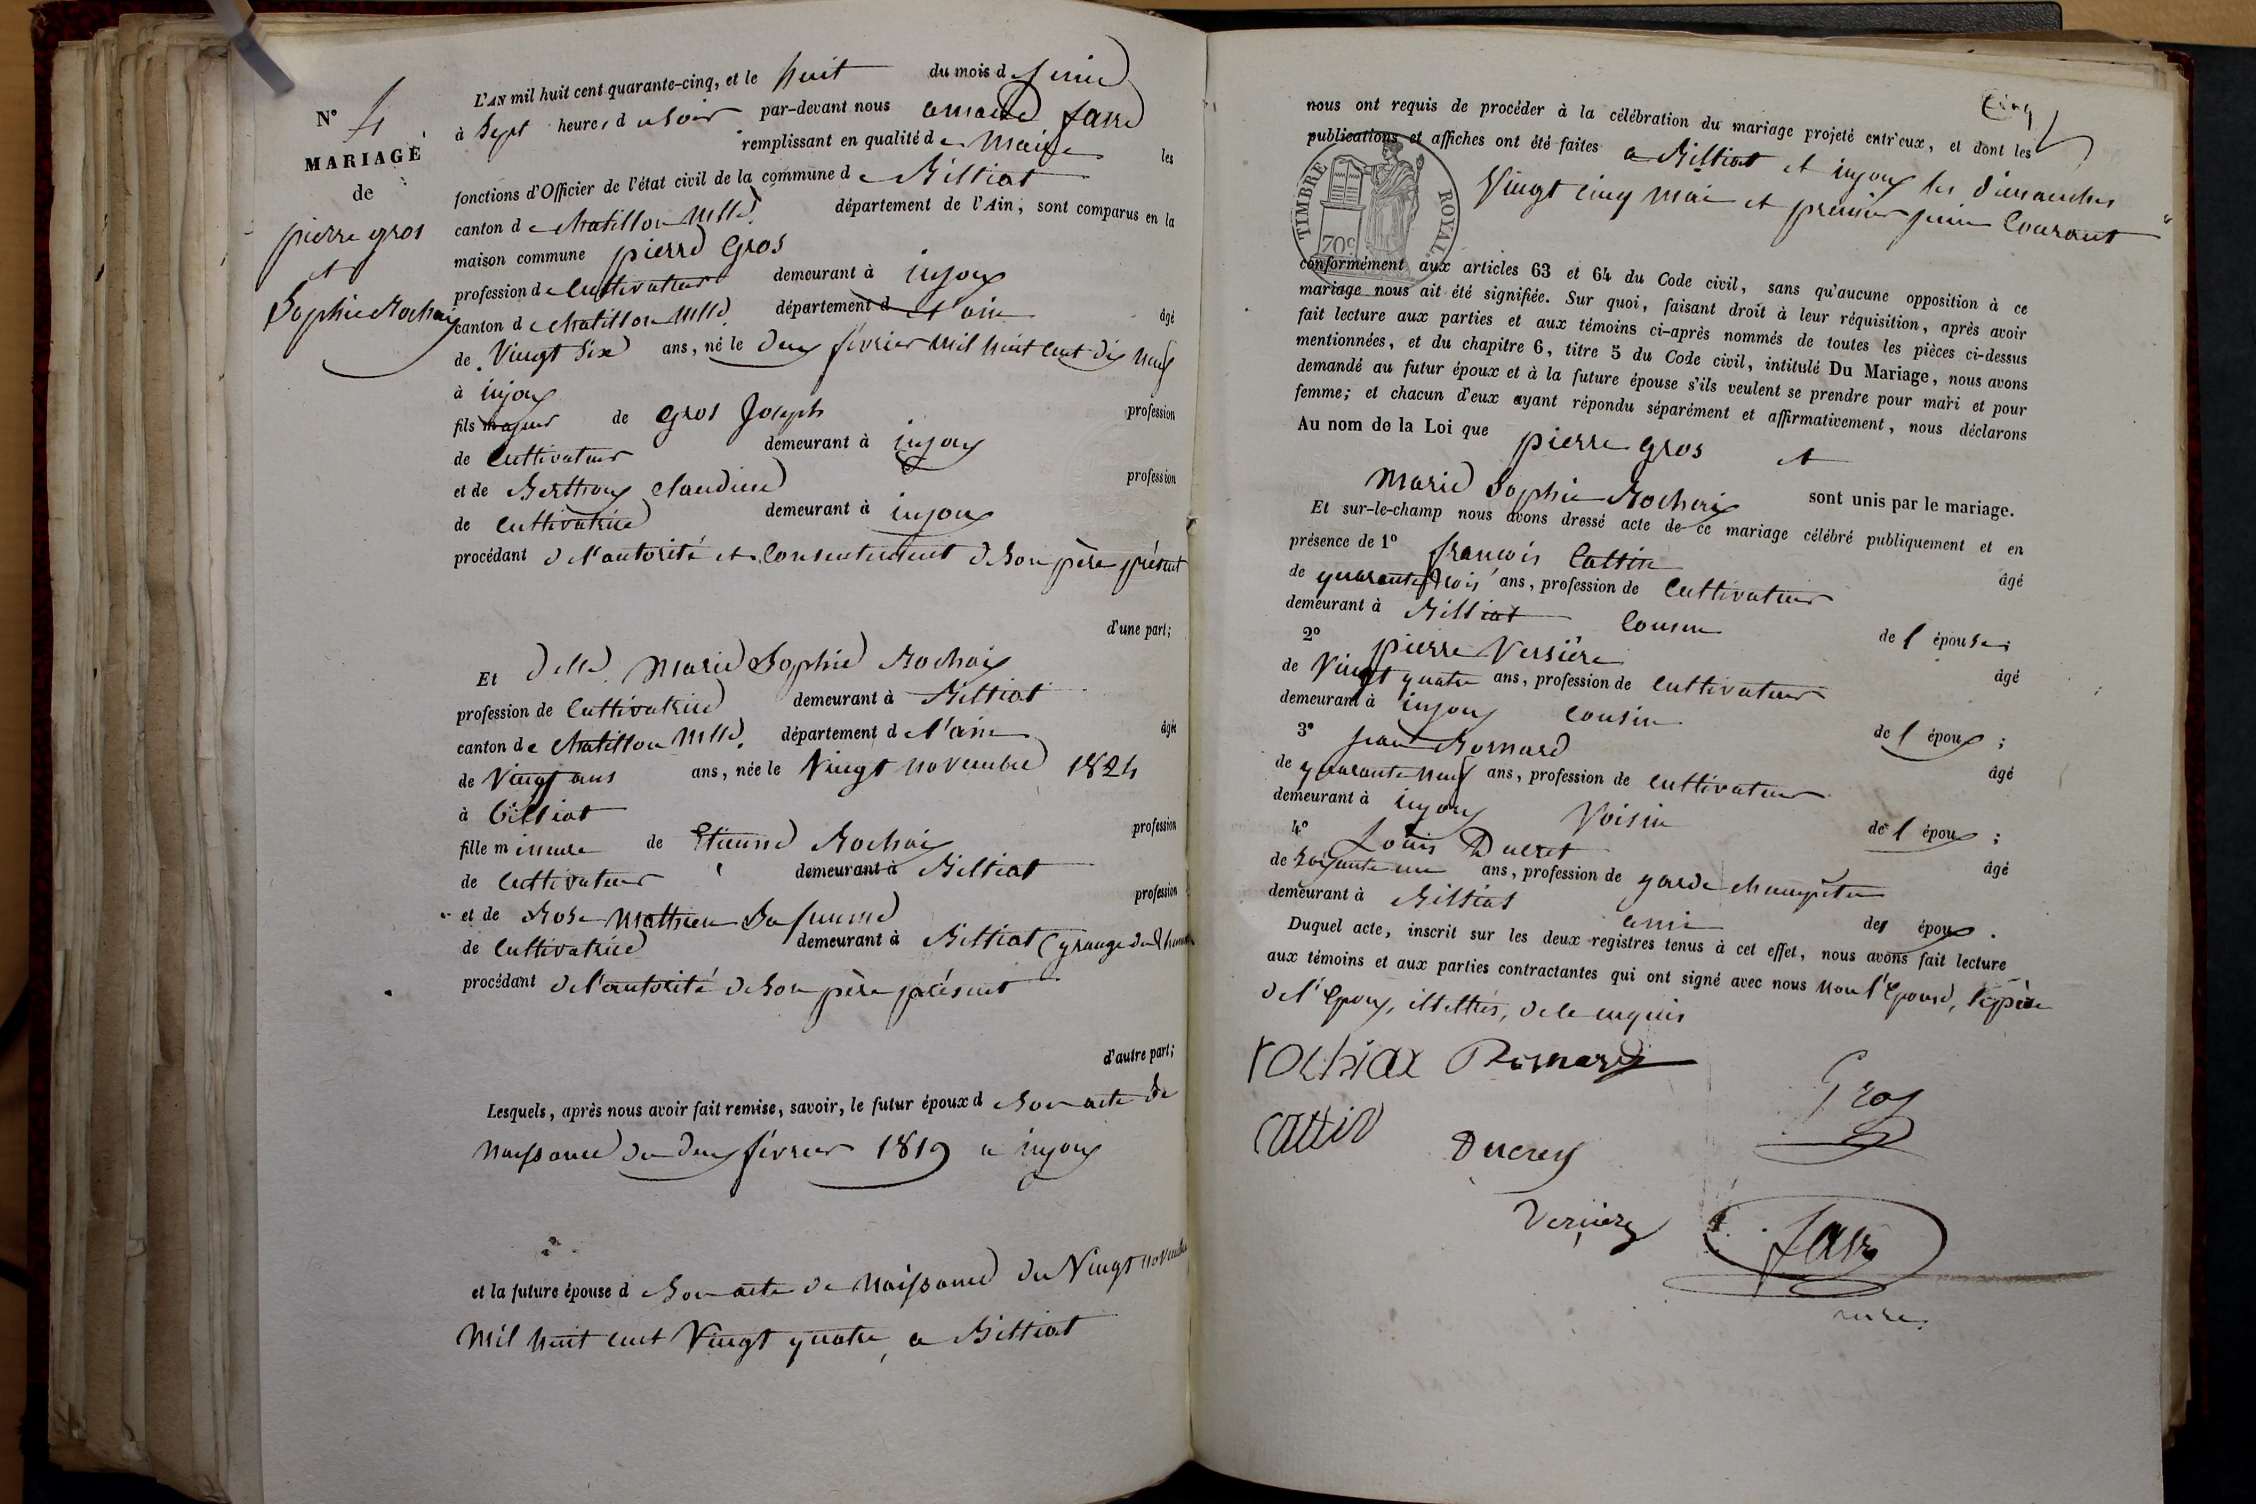 N° 4
MARIAGE
de
pierre gros
et
Sophie Rochaix
L'AN mil huit cent quarante-cinq, et le huit du mois de juin
à Sept heures du soir par-devant nous amand favre
remplissant en qualité de Maire les
fonctions d'Officier de l'état civil de la commune de Billiat
canton de chatillon Mlle. département de l'Ain, sont comparus en la
maison commune pierre Gros
profession de Cultivateur demeurant à injoux
canton de chatillon Mlle. département de l'ain âgé
de Vingt Six ans, né le deux février Mil huit cent dix neuf
à injoux
fils majeur de gros Joseph profession
de Cultivateur demeurant à injoux
et de Berthoux claudine profession
de Cultivatrice demeurant à injoux
procédant de l'autorité et Consentement de Son père présent
d'une part;
Et delle. Marie Sophie Rochaix
profession de Cultivatrice demeurant à Billiat
canton de chatillon Mlle. département de l'ain âgée
de Vingt ans ans, née le Vingt novembre 1824
à billiat
fille mineure de Etienne Rochaix profession
de Cultivateur demeurant à Billiat
et de Rose Mathieu profession
de Cultivatrice demeurant à Billiat (grange du
procédant de l'autorité de Son père présent
d'autre part;
Lesquels, après nous avoir fait remise, savoir, le futur époux de Son acte de
Naissance du deux février 1819 a injoux
et la future épouse de Son acte de Naissance du Vingt novembre
Mil huit cent Vingt quatre, a Billiat
Cinq
nous ont requis de procéder à la célébration du mariage projeté entr'eux, et dont les
publications et affiches ont été faites a Billiat et injoux les dimanches
Vingt cinq Mai et premier juin Courant
TIMBRE ROYAL.
70c
conformément aux articles 63 et 64 du Code civil, sans qu'aucune opposition à ce
mariage nous ait été signifiée. Sur quoi, faisant droit à leur réquisition, après avoir
fait lecture aux parties et aux témoins ci-après nommés de toutes les pièces ci-dessus
mentionnées, et du chapitre 6, titre 5 du Code civil, intitulé Du Mariage, nous avons
demandé au futur époux et à la future épouse s'ils veulent se prendre pour mari et pour
femme; et chacun d'eux ayant répondu séparément et affirmativement, nous déclarons
Au nom de la Loi que pierre gros et
Marie Sophie Rochaix sont unis par le mariage.
Et sur-le-champ nous avons dressé acte de ce mariage célébré publiquement et en
présence de 1° françois Cattin âgé
de quarante trois ans, profession de Cultivateur
demeurant à Billiat Cousin de l'épouse;
2° pierre Versière âgé
de Vingt quatre ans, profession de Cultivateur
demeurant à injoux Cousin de l'époux;
3° jean Bornard âgé
de quarante neuf ans, profession de Cultivateur
demeurant à injoux Voisin de l'époux;
4° Louis Ducret âgé
de Soixante un ans, profession de garde champêtre
demeurant à Billiat ami des époux.
Duquel acte, inscrit sur les deux registres tenus à cet effet, nous avons fait lecture
aux témoins et aux parties contractantes qui ont signé avec nous Non l'Epouse, le père
de l'Epoux, illettrés, de ce enquis
rochiax Bornard
Gros
Cattin
Ducret
Versière
favre